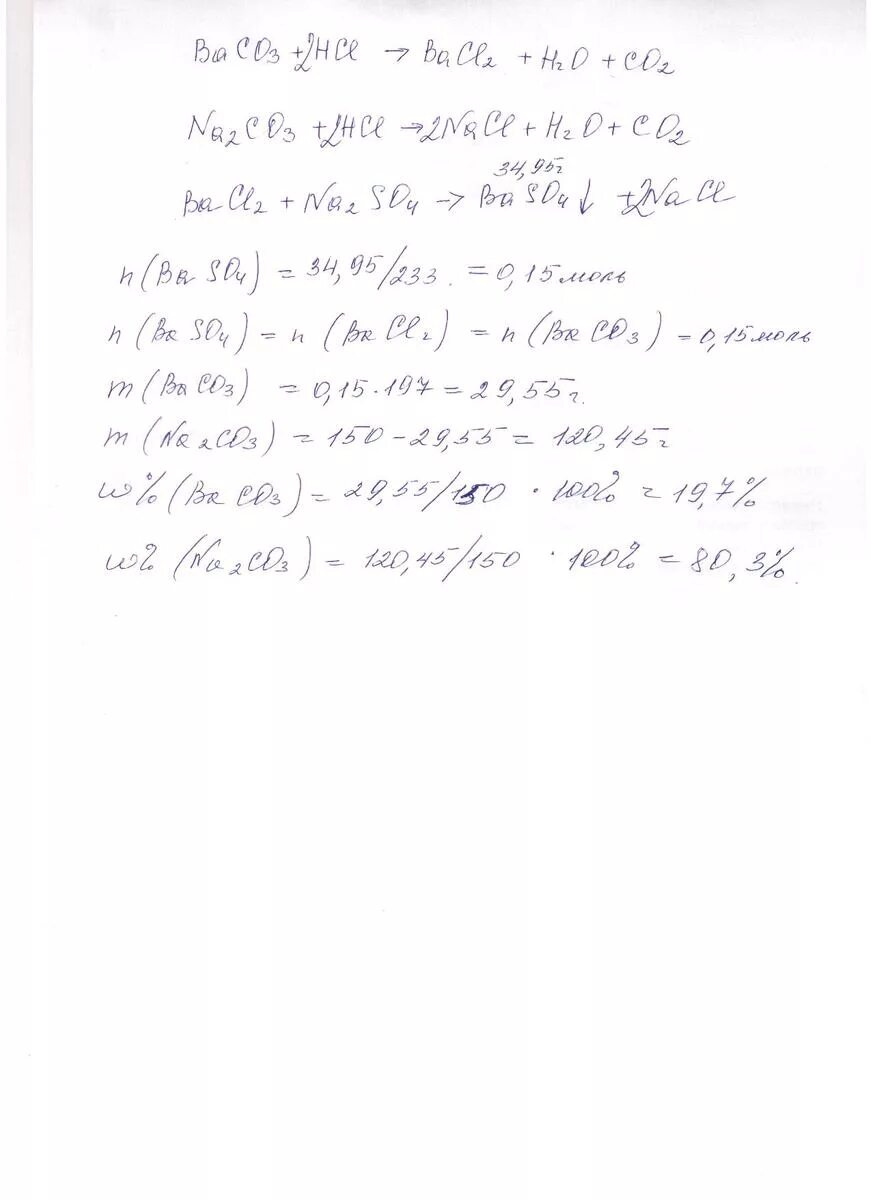 BaCO3 + 2HCl → BaCl2 + H2O + CO2
Na2CO3 + 2HCl → 2NaCl + H2O + CO2
34,95г
BaCl2 + Na2SO4 → BaSO4↓ + 2NaCl
n(BaSO4) = 34,95/233. = 0,15моль
n(BaSO4) = n(BaCl2) = n(BaCO3) = 0,15моль
m(BaCO3) = 0,15·197 = 29,55г.
m(Na2CO3) = 150 - 29,55 = 120,45г
w%(BaCO3) = 29,55/150 · 100% = 19,7%
w%(Na2CO3) = 120,45/150 · 100% = 80,3%.